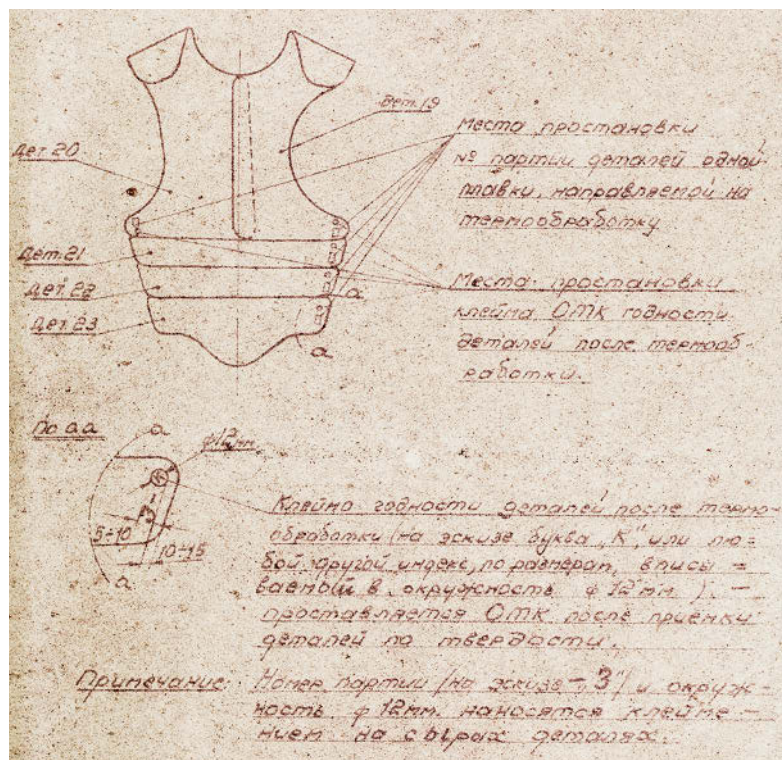 Дет. 19
Дет. 20
Места простановки
№ партии деталей одной
плавки, направляемой на
термообработку
Дет. 21
Дет. 22
Дет. 23
а
а
Места простановки
клейма ОТК годности
деталей после термооб
работки.
По аа
а
ф12мм.
К
3
5÷10
10÷15
а
Клеймо годности деталей после термо-
обработки (на эскизе буква „К", или лю=
бой другой индекс, по размерам, вписы =
ваемый в окружность ф 12мм.). —
проставляется ОТК после приёмки
деталей по твердости.
Примечание: Номер партии (на эскизе - „3") и окруж-
ность ф 12мм. наносятся клейме —
нием на сырых деталях.